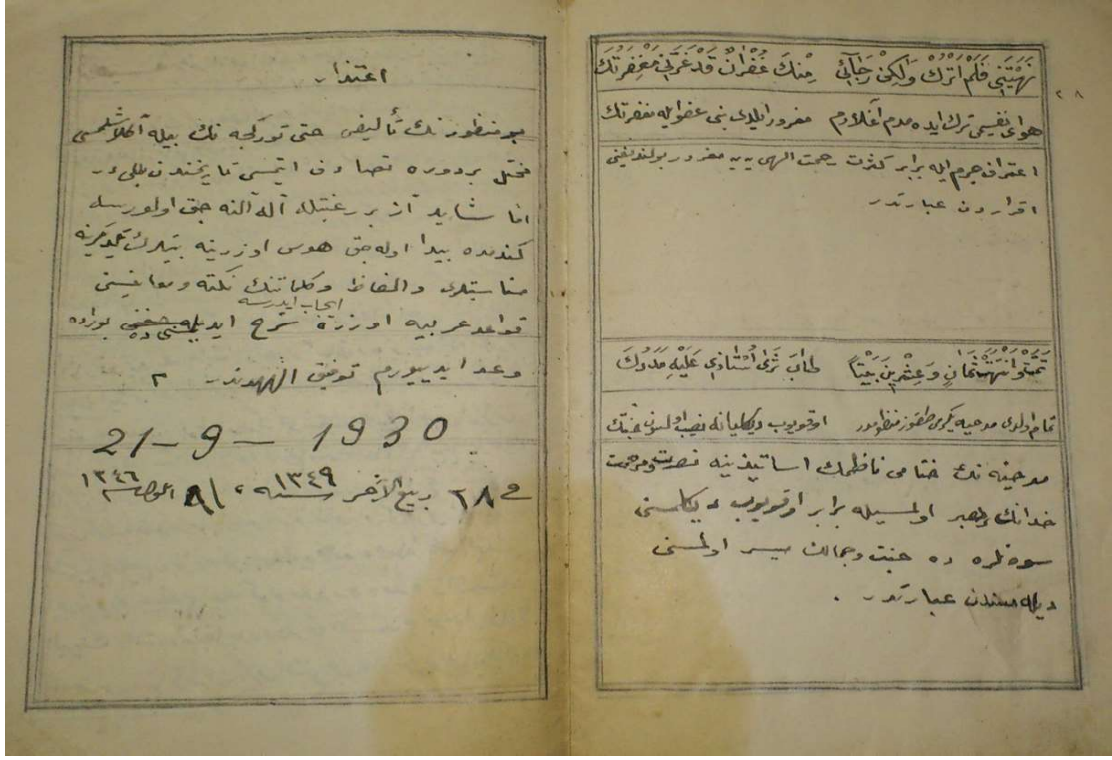 نَهَيْتَنِي فَلَمْ اَتْرُكْ وَلٰكِنْ رَجَائِي مِنْكَ غُفْرَانٌ قَدْ غَرَّنِي مَغْفِرَتُكَ
٢٨
هوای نفسیمی ترك ایده مدم آغلارم مغرور ایلدی بنی عفو ایله مغفرتك
اعتراف جرم ایله برابر كثرت رحمت الهی یه مغرور بولندیغنی
اقراردن عبارتدر
ثَمَانٍ وَعِشْرِينَ بَيْتاً طَابَ ثَرٰى اُسْتَاذِي عَلَيْهِ
تمام اولدی مدحیه یكرمی طقوز منظومدر اوقویوب دیكلیانه نصیب اولسون جنتك
مدحیه نك ختامی ناظمك اساتیذینه نصرت ومرحمت
خدانك رهبر اولمسیله برابر اوقویوب دیكلمسنی
سوه نلره ده جنت وجمالك میسر اولمسنی
دیله مسندن عبارتدر .
اعتذار
بو منظورنك تألیفی حتی توركجه نك بیله آكلاشلمسی
مختل بر دوره تصادف ایتمسی تاریخندن بللیدر
اما شاید آز بر رغبتله آله النه جق اولورسه
كندمده پیدا اوله جق هوس اوزرینه بیتلرك
مناسبتلری والفاظ وكلماتنك نكته ومعانیسنی
ایجاب ایدرسه
قواعد عربیه اوزره شرح ایدیلمسنی ده بوراده
وعد ایدییورم توفیق اللهدندر ٢
21-9-1930
٢٨ ربیع الآخر سنه ١٣٤٩ ١٣٤٦